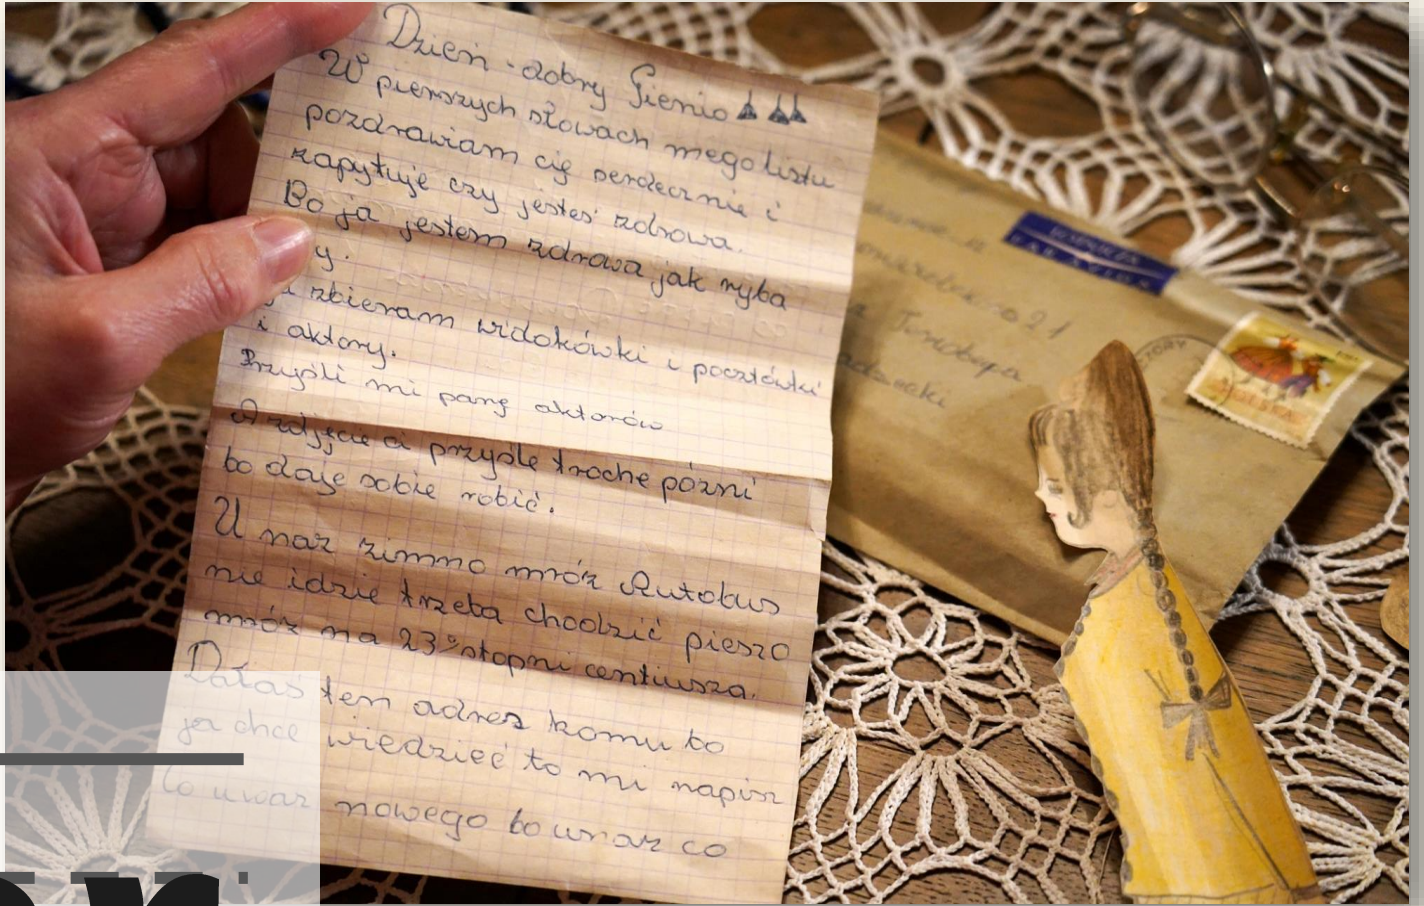 Dzień-dobry Gienio
W pierszych słowach mego listu
pozdrawiam cię serdecznie i
zapytuje czy jesteś zdrowa.
Bo ja jestem zdrowa jak ryba
y.
zbieram widokówki i pocztówki
i aktory.
Przyśli mi parę aktorów
A zdjęcie ci przyślę troche pózni
bo daje sobie robić.
U naz zimmo mróz Autobus
nie idzie trzeba chodzić pieszo
mróz na 23° stopni centiusza.
Dałaś ten adres komu bo
ja chce wiedzieć to mi napisz
Co uwaz nowego bo unaz co
PAR AVION
21
POLSKA